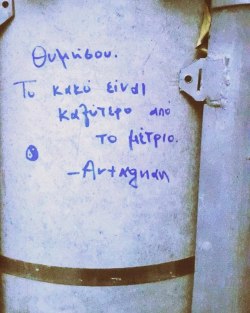 Θυμήσου.
Το κακό είναι
καλύτερο από
το μέτριο.